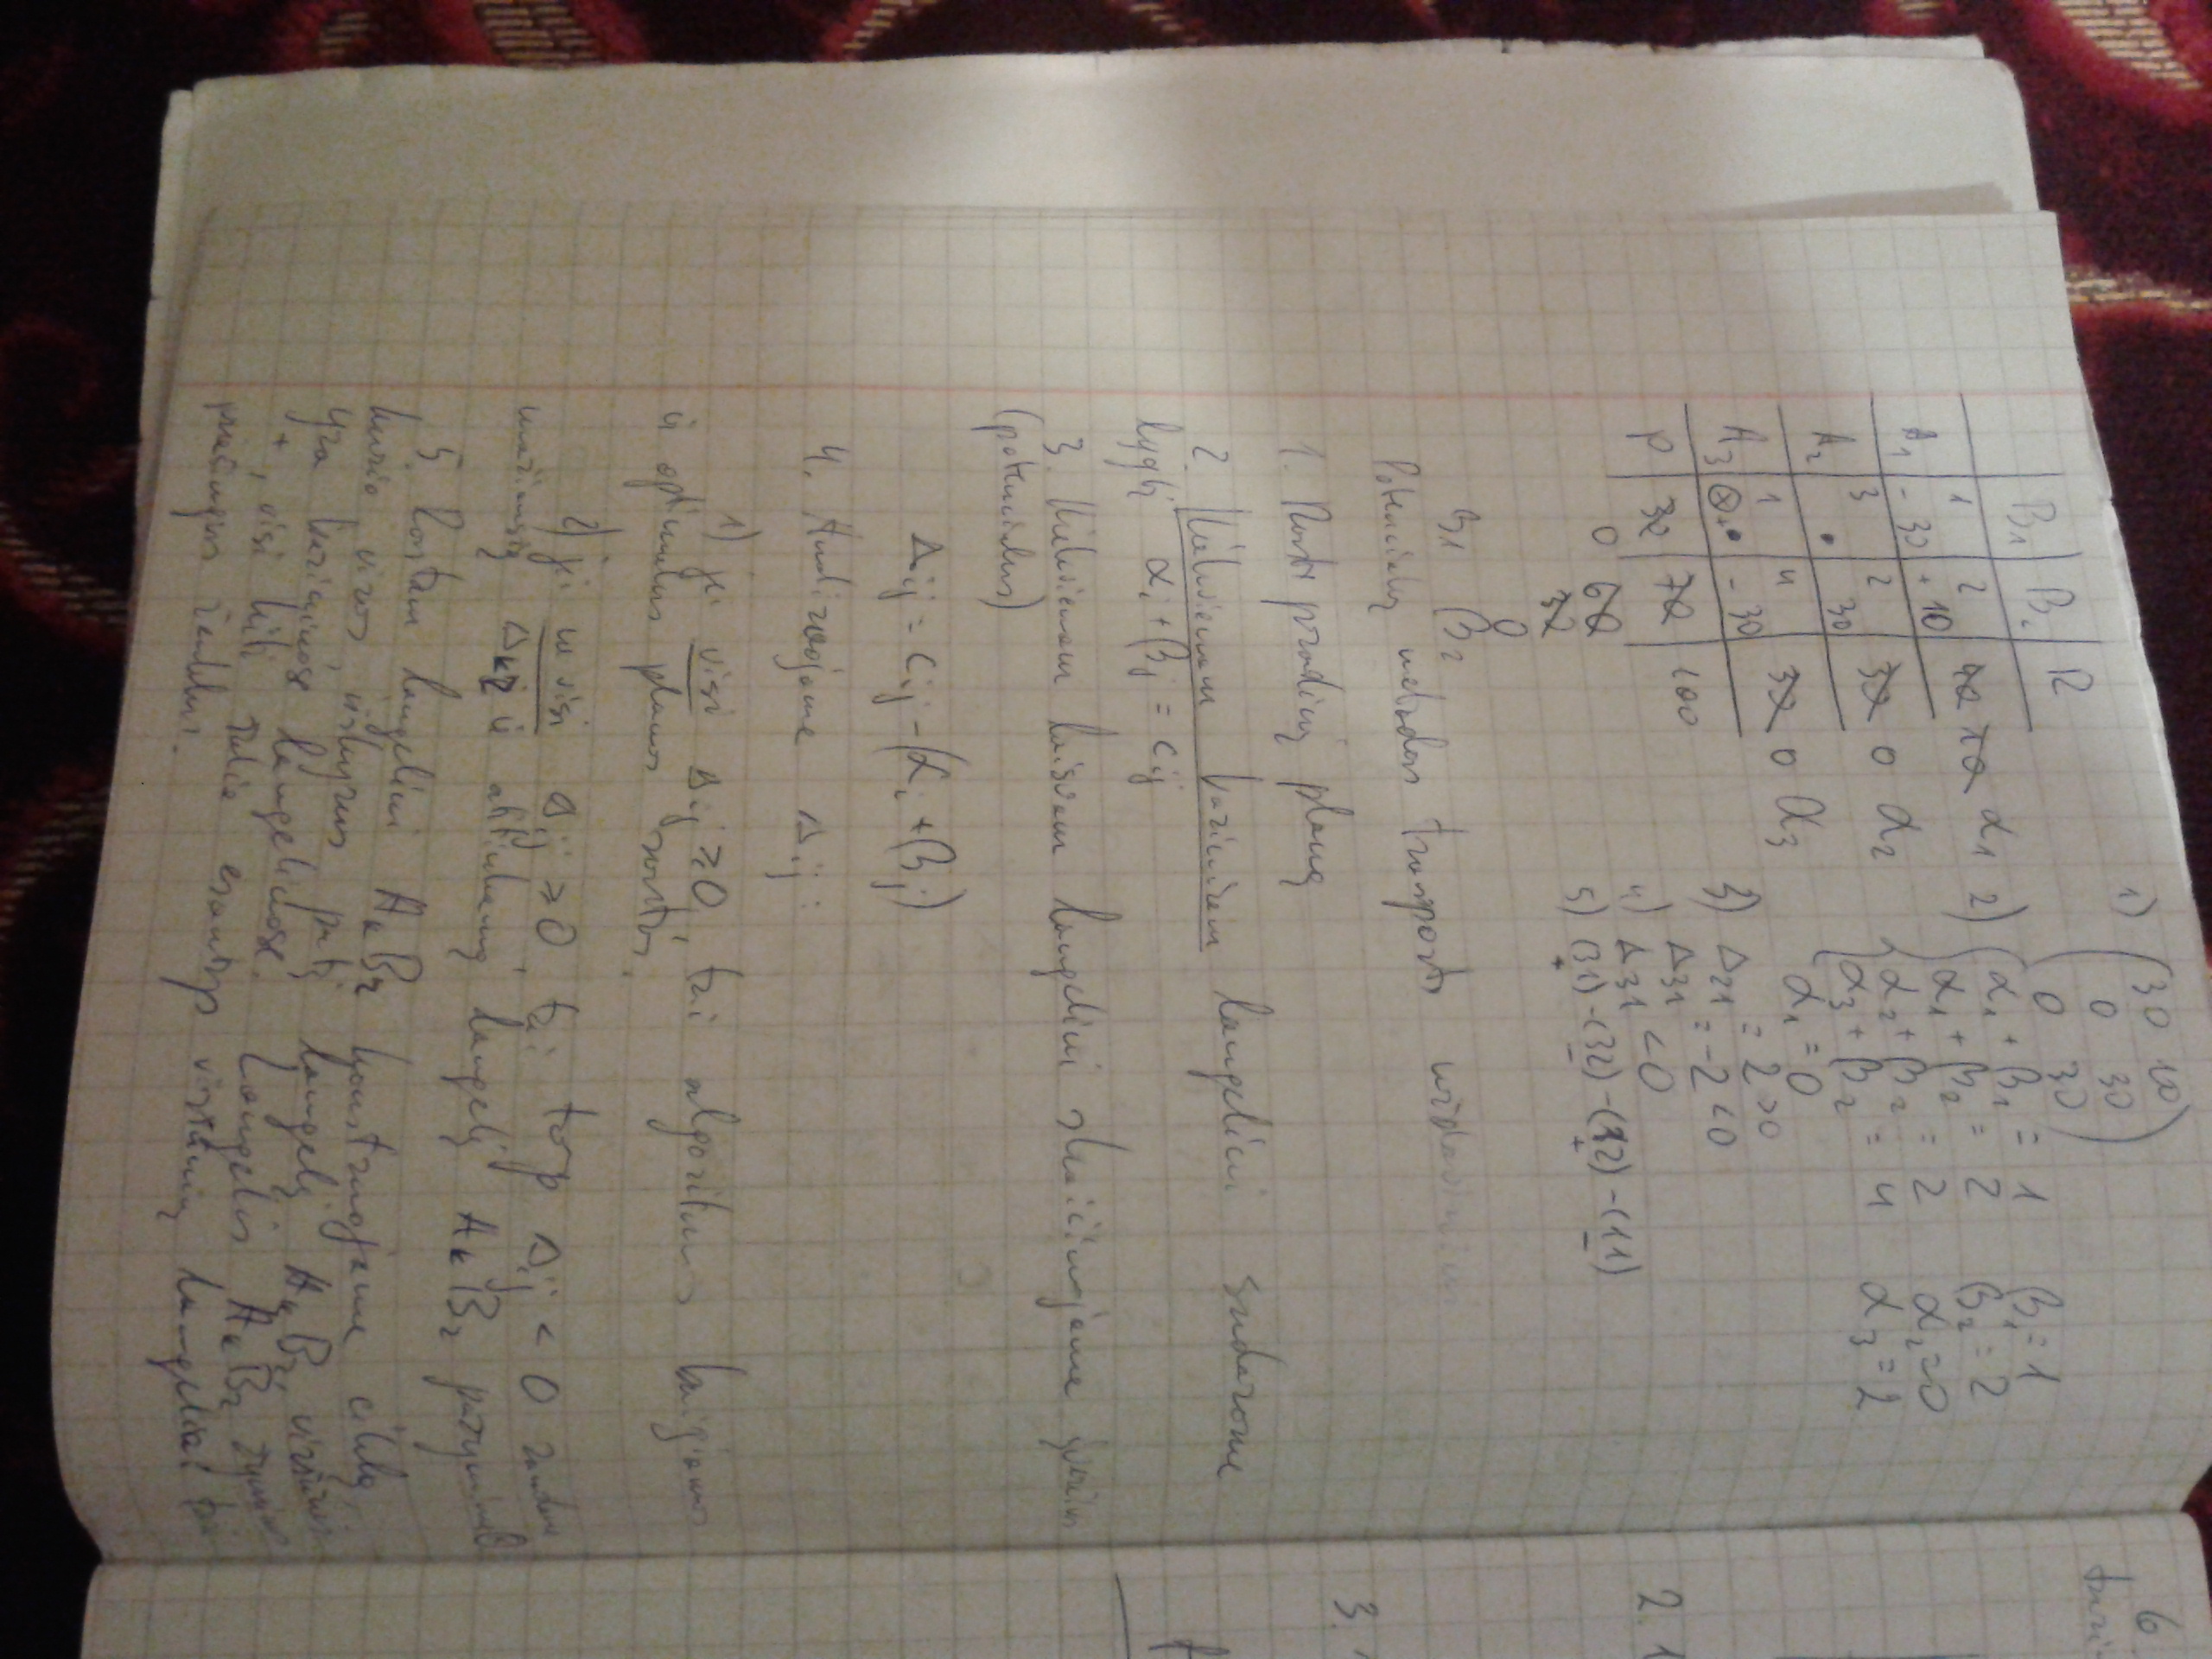 B₁ B₂ R
A₁ 1 - 30 2 + 10 40 10 α₁
A₂ 3 • 2 30 30 0 α₂
A₃ 1 ⊗ + • 4 - 30 30 0 α₃
P 30 70 100
0 60
30
0
β₁ β₂
1) (30 10
0 30
0 30)
2) { α₁ + β₁ = 1 β₁ = 1
α₁ + β₂ = 2 β₂ = 2
α₂ + β₂ = 2 α₂ = 0
α₃ + β₂ = 4 α₃ = 2
α₁ = 0
3) Δ₂₁ = 2 > 0
Δ₃₁ = -2 < 0
4) Δ₃₁ < 0
5) (31) - (32) - (12) - (11)
+ - + -
Potencialų metodas transporto
1. Rasti pradinį planą
2. Kiekvienam baziniam langeliui sudarome
lygtį αᵢ + βⱼ = cᵢⱼ
3. Kiekvienam laisvam langeliui skaičiuojame įverčius
(potencialus)
Δᵢⱼ = cᵢⱼ - (αᵢ + βⱼ)
4. Analizuojame Δᵢⱼ:
1) jei visi Δᵢⱼ ≥ 0, tai algoritmas baigiamas
ir optimalus planas rastas.
2) jei ne visi Δᵢⱼ ≥ 0, tai tarp Δᵢⱼ < 0 randame
mažiausią ir atitinkamą langelį pažymime ⊗
5. Rastam langeliui konstruojame ciklą,
kurio visos, išskyrus patį langelį viršūnės
yra baziniuose langeliuose. Langelis žymimas
+, visi kiti šalia esantys viršūnių langeliai
priešingus ženklus.
6.
2. 1
3.